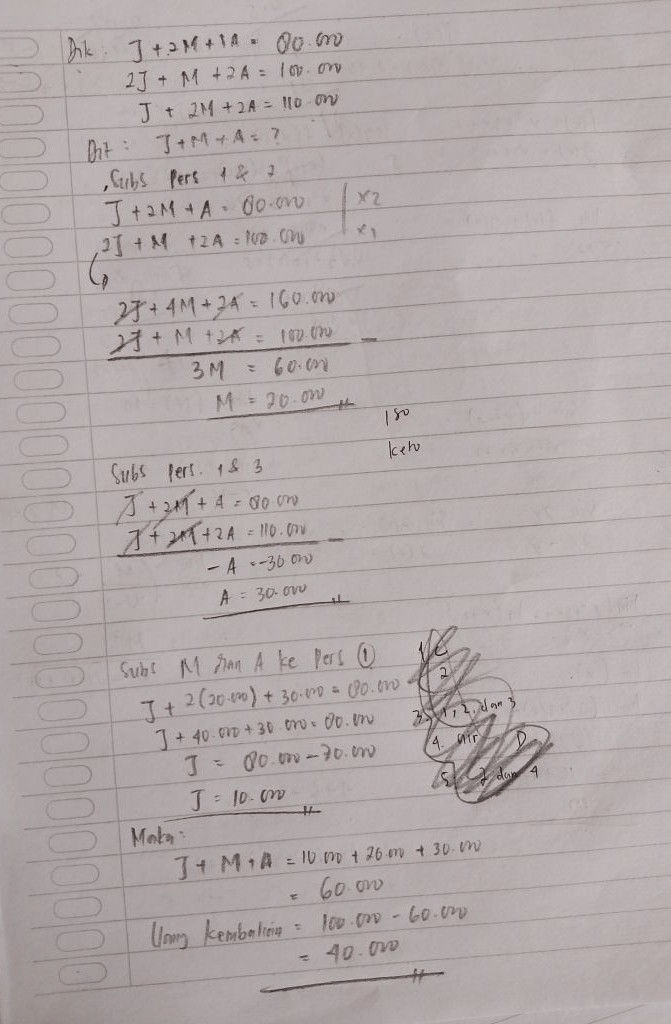 Dik : J + 2M + 1A = 80.000
2J + M + 2A = 100.000
J + 2M + 2A = 110.000
Dit : J + M + A = ?
Subs Pers 1 & 2
J + 2M + A = 80.000 | x2
2J + M + 2A = 100.000 | x1
2J + 4M + 2A = 160.000
2J + M + 2A = 100.000 –
3M = 60.000
M = 20.000
180
Subs Pers. 1 & 3
J + 2M + A = 80.000
J + 2M + 2A = 110.000 –
- A = -30.000
A = 30.000
Subs M dan A ke Pers ①
J + 2(20.000) + 30.000 = 80.000
J + 40.000 + 30.000 = 80.000
J = 80.000 - 70.000
J = 10.000
2
3. 1, 2, dan 3
4. air D
5. 2 dan 4
Maka :
J + M + A = 10.000 + 20.000 + 30.000
= 60.000
Uang kembalian = 100.000 - 60.000
= 40.000